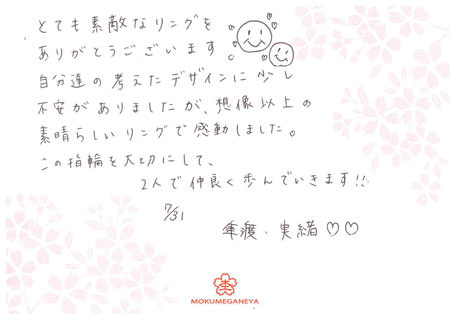 とても素敵なリングを
ありがとうございます
自分達の考えたデザインに少し
不安がありましたが、想像以上の
素晴らしいリングで感動しました。
この指輪を大切にして、
2人で仲良く歩んでいきます!!
7/31
実緒♡♡
MOKUMEGANEYA